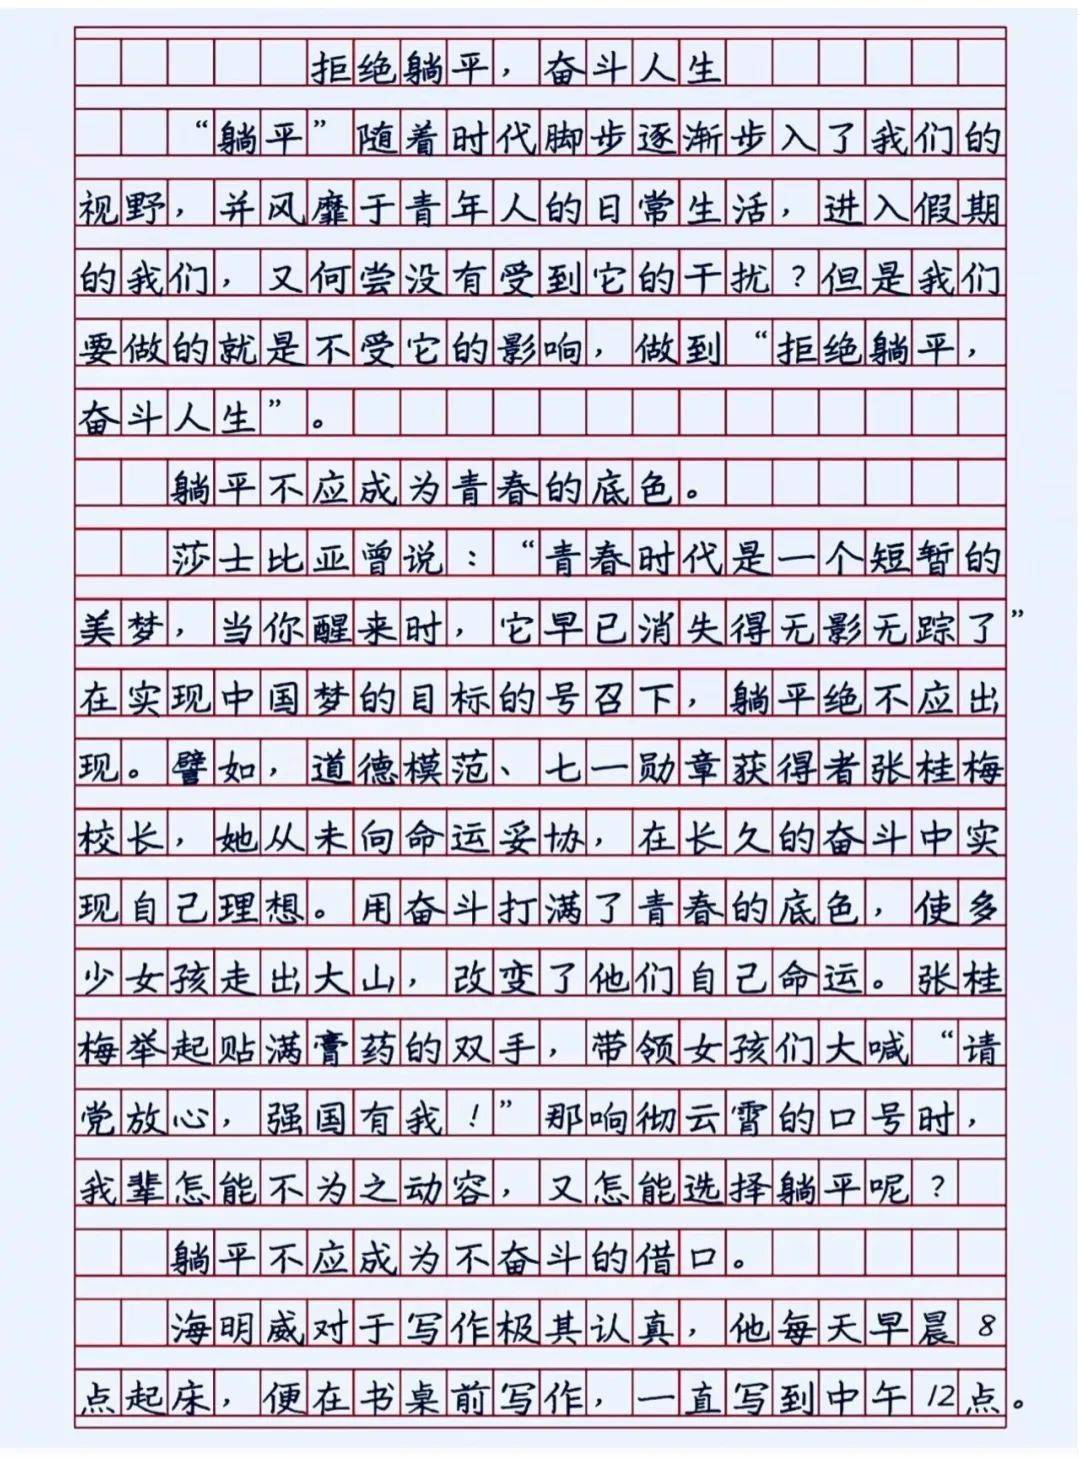 拒绝躺平，奋斗人生
“躺平”随着时代脚步逐渐步入了我们的
视野，并风靡于青年人的日常生活，进入假期
的我们，又何尝没有受到它的干扰？但是我们
要做的就是不受它的影响，做到“拒绝躺平，
奋斗人生”。
躺平不应成为青春的底色。
莎士比亚曾说：“青春时代是一个短暂的
美梦，当你醒来时，它早已消失得无影无踪了”
在实现中国梦的目标的号召下，躺平绝不应出
现。譬如，道德模范、七一勋章获得者张桂梅
校长，她从未向命运妥协，在长久的奋斗中实
现自己理想。用奋斗打满了青春的底色，使多
少女孩走出大山，改变了他们自己命运。张桂
梅举起贴满膏药的双手，带领女孩们大喊“请
党放心，强国有我！”那响彻云霄的口号时，
我辈怎能不为之动容，又怎能选择躺平呢？
躺平不应成为不奋斗的借口。
海明威对于写作极其认真，他每天早晨8
点起床，便在书桌前写作，一直写到中午12点。